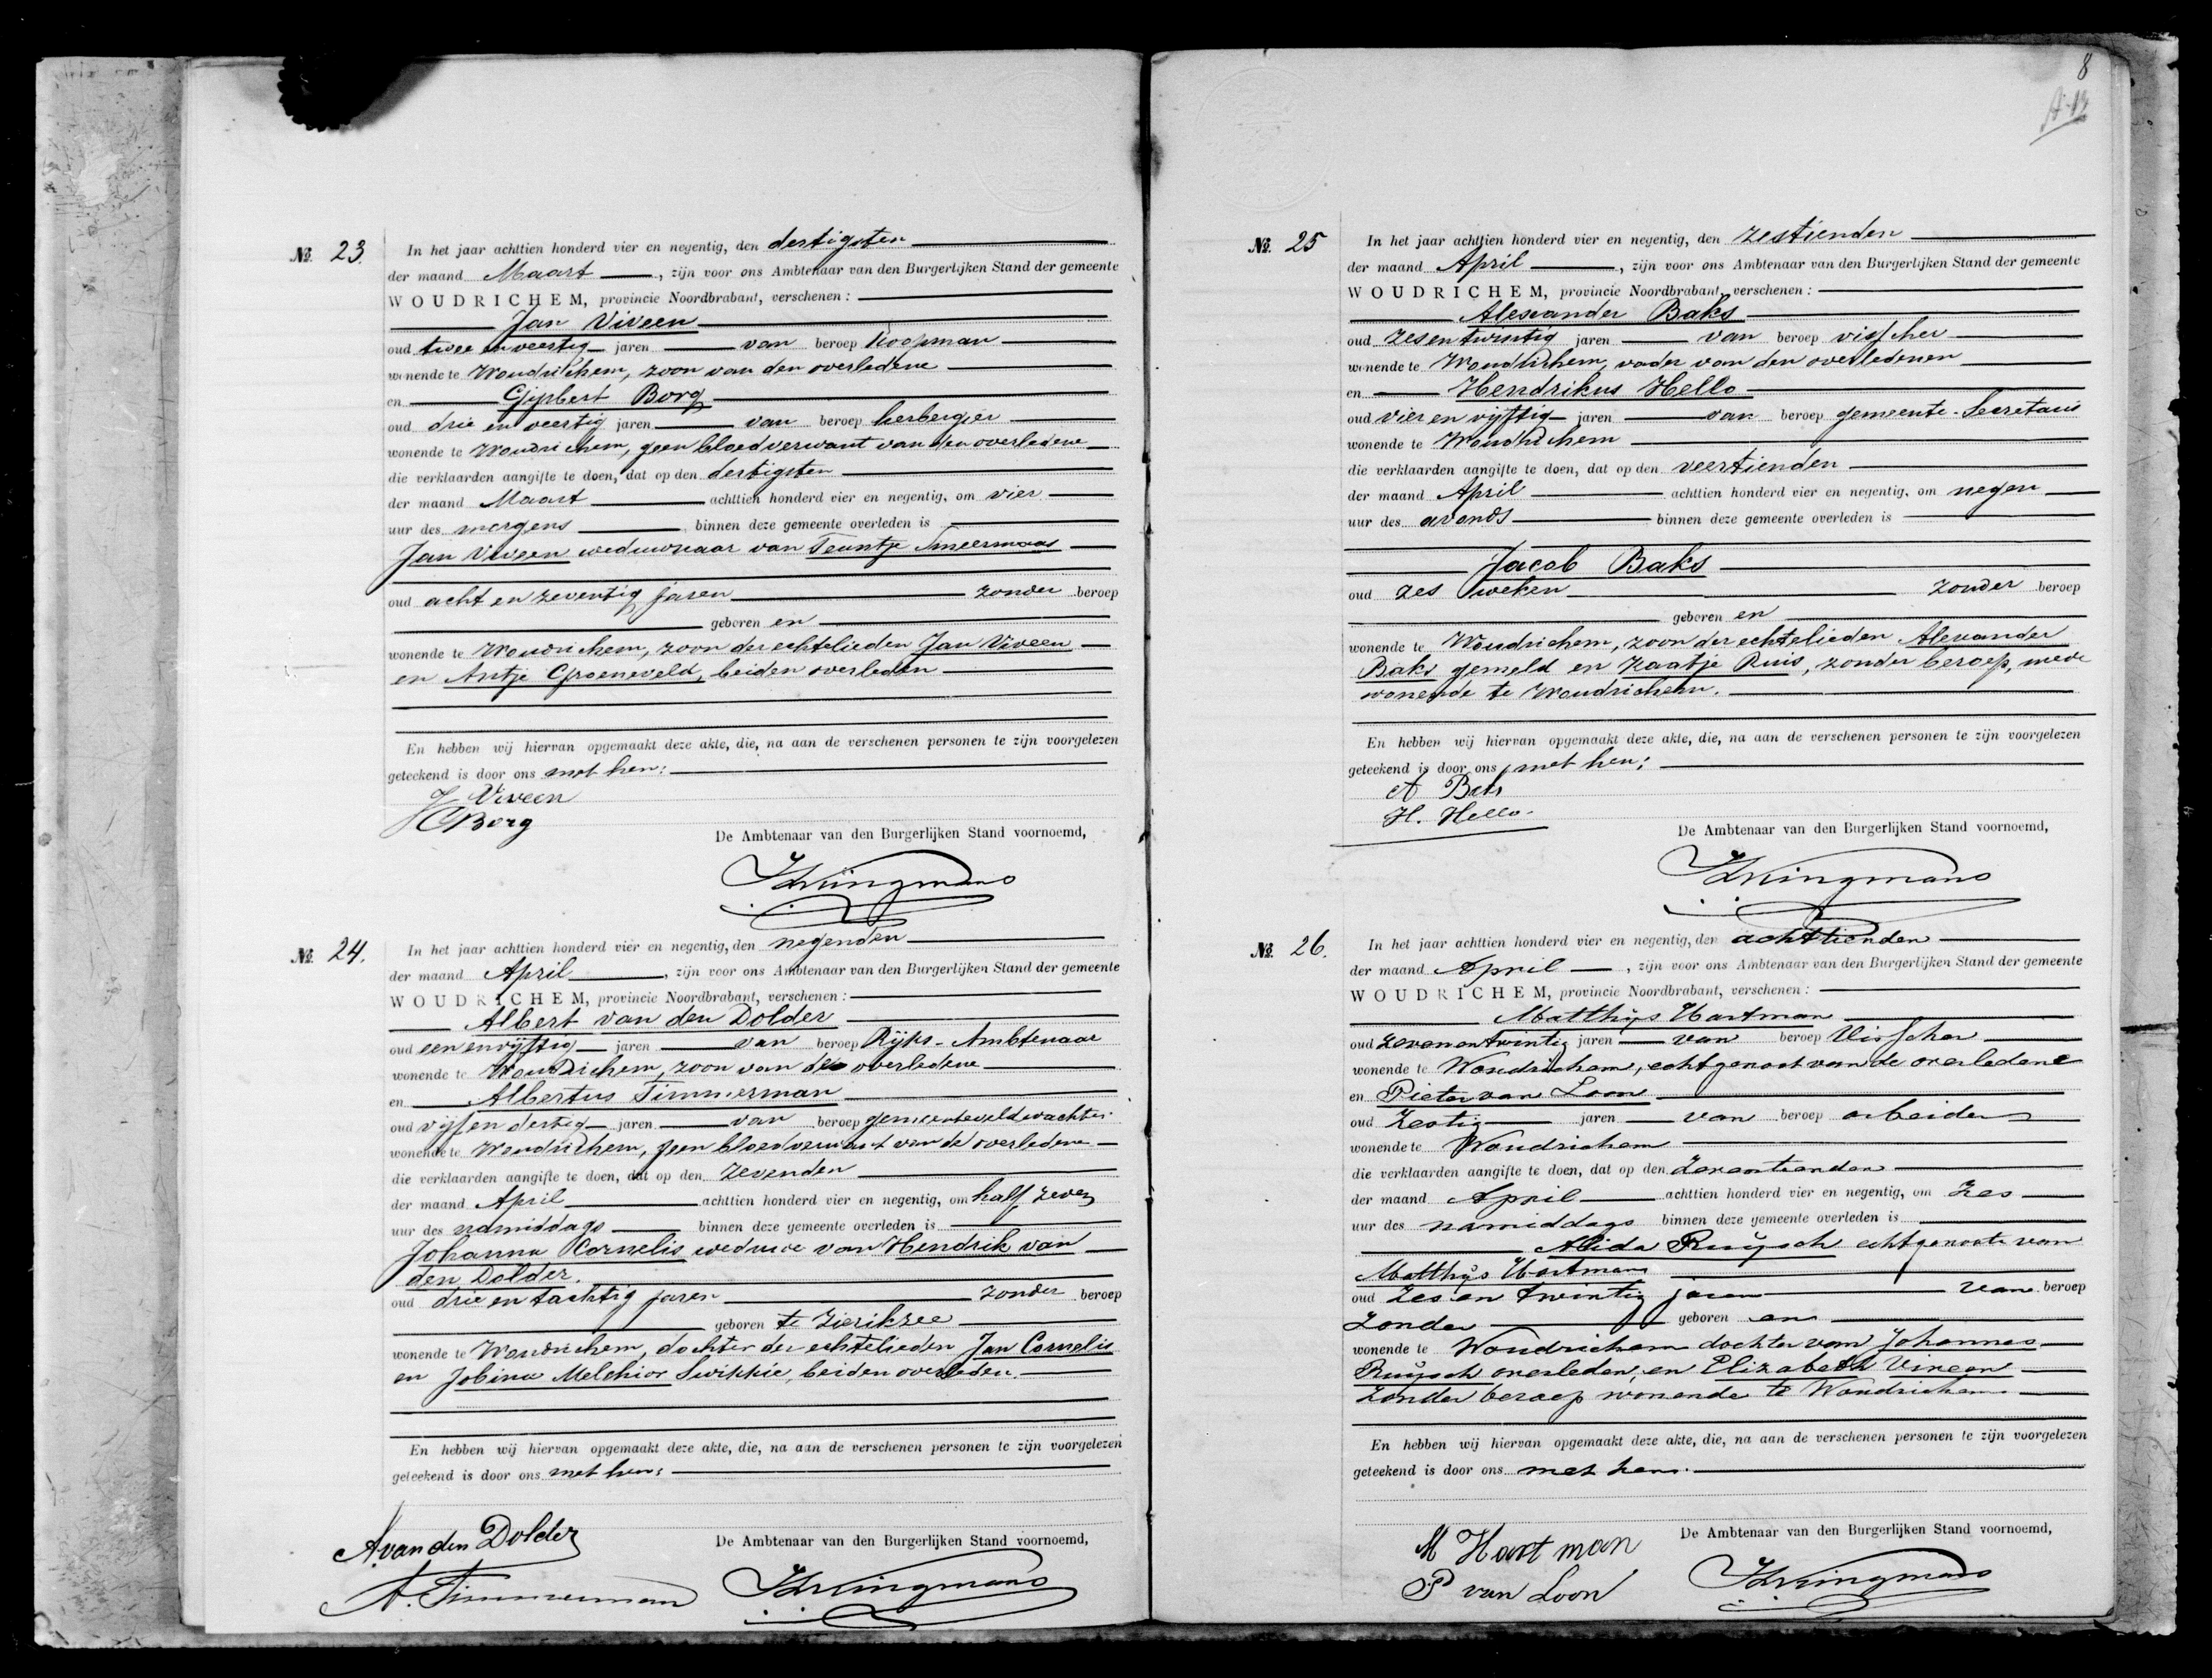 8
A 13
№ 23. In het jaar achttien honderd vier en negentig, den dertigsten
der maand Maart, zijn voor ons Ambtenaar van den Burgerlijken Stand der gemeente
WOUDRICHEM, provincie Noordbrabant, verschenen:
Jan Viveen
oud twee en veertig jaren van beroep koopman
wonende te Woudrichem, zoon van den overledene
en Gijsbert Borg
oud drie en veertig jaren van beroep herbergier
wonende te Woudrichem, geen bloedverwant van den overledene
die verklaarden aangifte te doen, dat op den dertigsten
der maand Maart achttien honderd vier en negentig, om vier
uur des morgens binnen deze gemeente overleden is
Jan Viveen weduwnaar van Teuntje Smeermaas
oud acht en zeventig jaren zonder beroep
geboren en
wonende te Woudrichem, zoon der echtelieden Jan Viveen
en Antje Groeneveld, beiden overleden
En hebben wij hiervan opgemaakt deze akte, die, na aan de verschenen personen te zijn voorgelezen
geteekend is door ons met hen:
J Viveen
G Borg
De Ambtenaar van den Burgerlijken Stand voornoemd,
№ 24. In het jaar achttien honderd vier en negentig, den negenden
der maand April, zijn voor ons Ambtenaar van den Burgerlijken Stand der gemeente
WOUDRICHEM, provincie Noordbrabant, verschenen:
Albert van den Dolder
oud een en vijftig jaren van beroep Rijks-Ambtenaar
wonende te Woudrichem, zoon van de overledene
en Albertus Timmerman
oud vijf en dertig jaren van beroep gemeenteveldwachter
wonende te Woudrichem, geen bloedverwant van de overledene
die verklaarden aangifte te doen, dat op den zevenden
der maand April achttien honderd vier en negentig, om half zeven
uur des namiddags binnen deze gemeente overleden is
Johanna Cornelis weduwe van Hendrik van
den Dolder.
oud drie en tachtig jaren zonder beroep
geboren te Zierikzee
wonende te Woudrichem, dochter der echtelieden Jan Cornelis
en Jobina Melchior Swikkie, beiden overleden.
En hebben wij hiervan opgemaakt deze akte, die, na aan de verschenen personen te zijn voorgelezen
geteekend is door ons met hen:
A. van den Dolder
A. Timmerman
De Ambtenaar van den Burgerlijken Stand voornoemd,
№ 25 In het jaar achttien honderd vier en negentig, den zestienden
der maand April, zijn voor ons Ambtenaar van den Burgerlijken Stand der gemeente
WOUDRICHEM, provincie Noordbrabant, verschenen:
Alexander Baks
oud zes en twintig jaren van beroep visscher
wonende te Woudrichem, vader van den overledenen
en Hendrikus Hello
oud vier en vijftig jaren van beroep gemeente-Secretaris
wonende te Woudrichem
die verklaarden aangifte te doen, dat op den veertienden
der maand April achttien honderd vier en negentig, om negen
uur des avonds binnen deze gemeente overleden is
Jacob Baks
oud zes weken zonder beroep
geboren en
wonende te Woudrichem, zoon der echtelieden Alexander
Baks gemeld en Kaatje Ruis, zonder beroep, mede
wonende te Woudrichem.
En hebben wij hiervan opgemaakt deze akte, die, na aan de verschenen personen te zijn voorgelezen
geteekend is door ons met hen;
A Baks
H. Hello.
De Ambtenaar van den Burgerlijken Stand voornoemd,
№ 26. In het jaar achttien honderd vier en negentig, den achttienden
der maand April, zijn voor ons Ambtenaar van den Burgerlijken Stand der gemeente
WOUDRICHEM, provincie Noordbrabant, verschenen:
Matthijs Hartman
oud zeven en twintig jaren van beroep Visscher
wonende te Woudrichem, echtgenoot van de overledene
en Pieter van Loon
oud Zestig jaren van beroep arbeider
wonende te Woudrichem
die verklaarden aangifte te doen, dat op den Zeventienden
der maand April achttien honderd vier en negentig, om Zes
uur des namiddags binnen deze gemeente overleden is
Alida Ruijsch echtgenoote van
Matthijs Hartman
oud Zes en twintig jaren van beroep
Zonder geboren en
wonende te Woudrichem dochter van Johannes
Ruijsch overleden, en Elizabeth Viveen
Zonder beroep wonende te Woudrichem
En hebben wij hiervan opgemaakt deze akte, die, na aan de verschenen personen te zijn voorgelezen
geteekend is door ons met hen.
M Hartman
P van Loon
De Ambtenaar van den Burgerlijken Stand voornoemd,